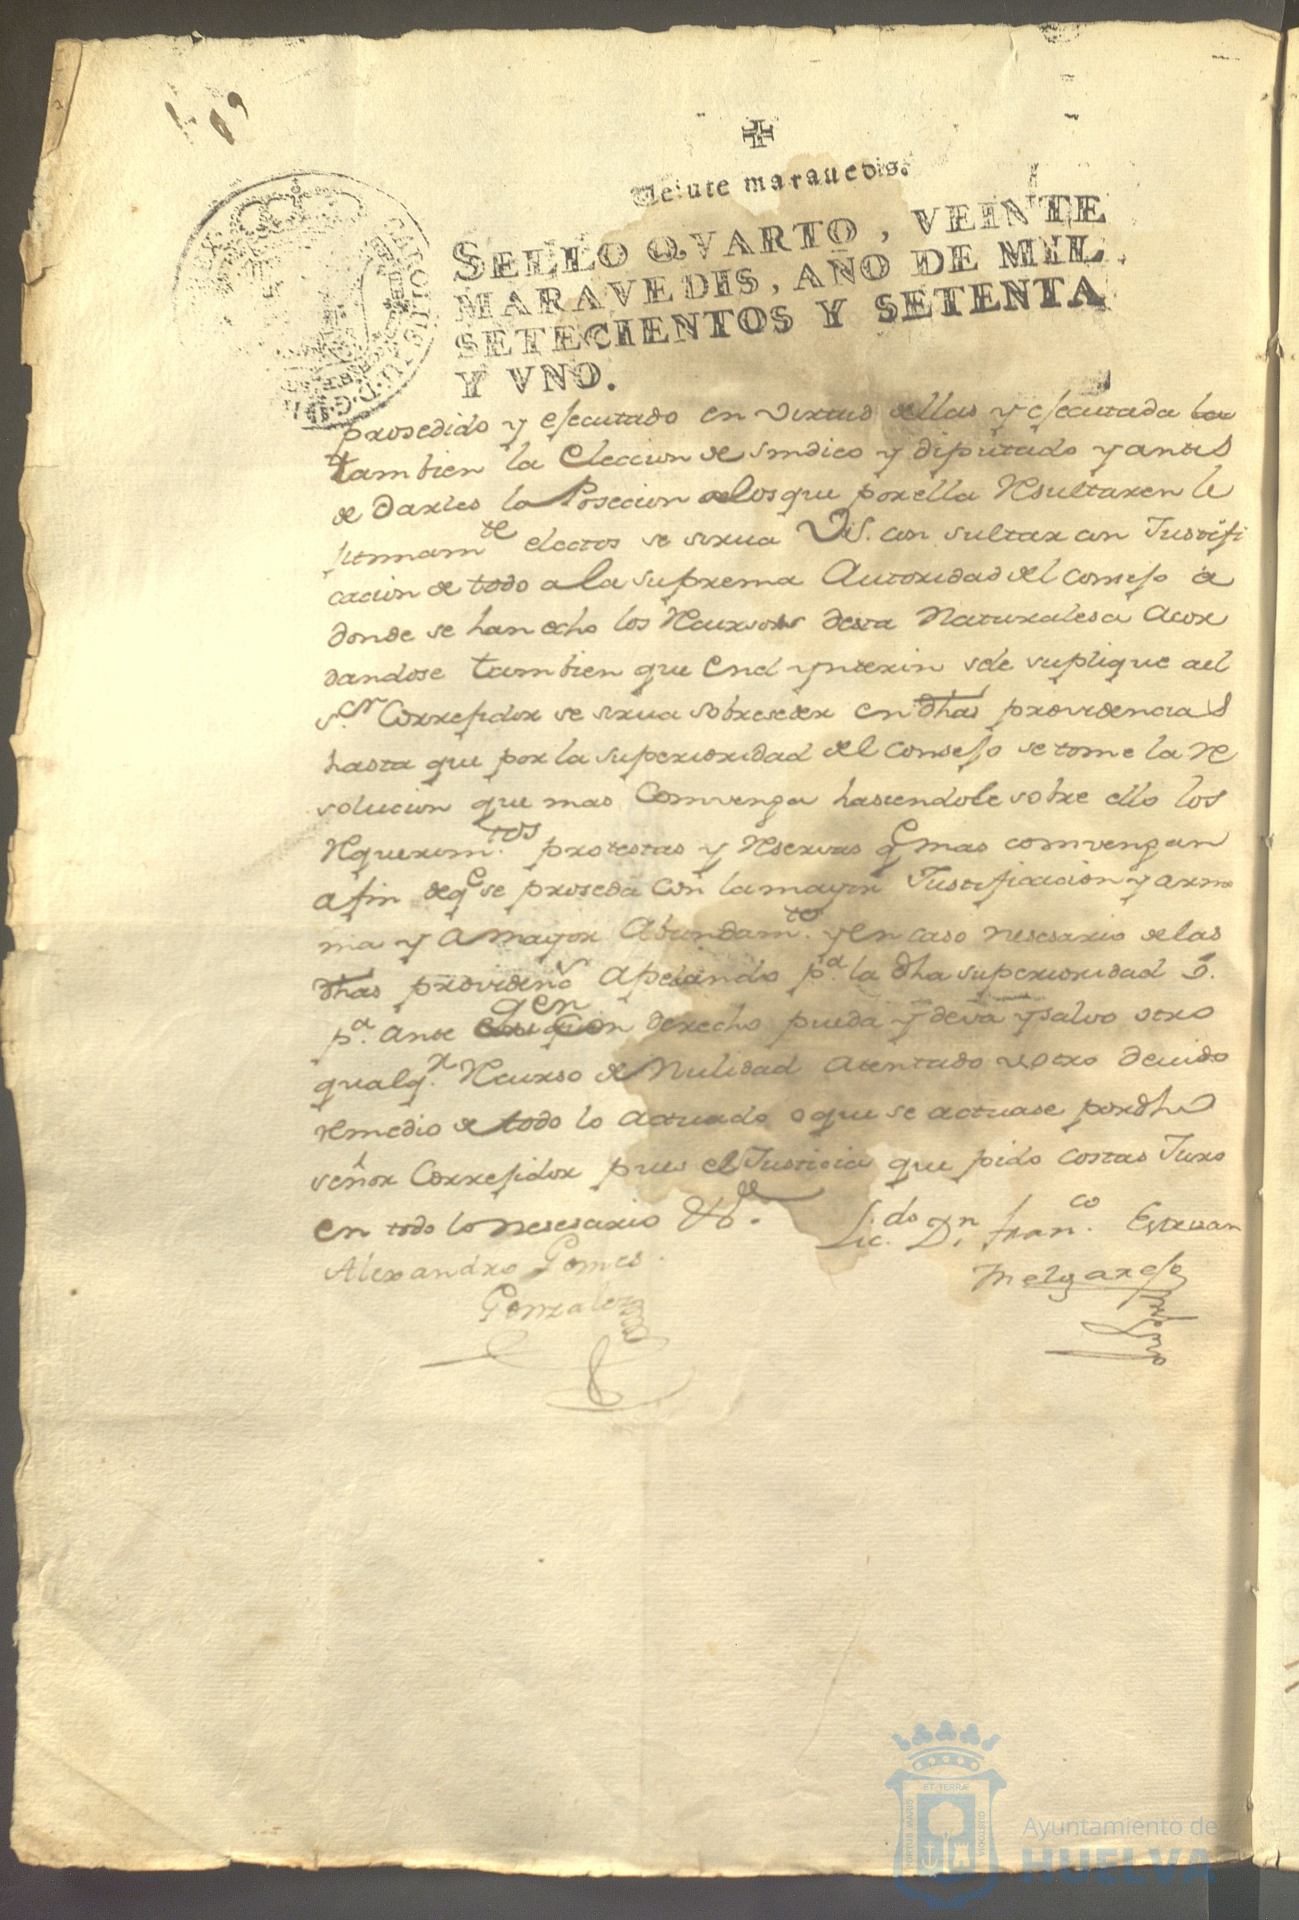 Veiute marauedis.
SELLO QVARTO, VEINTE
MARAVEDIS, AÑO DE MIL
SETECIENTOS Y SETENTA
Y VNO.
prosedido y efecutado en virtud dellas y efecutada
tambien la Eleccion de sindico y diputado y antes
de darles la Posecion alos que por ella Resultaren le
sitimam.te electos se sirua VS. con sultar con Justifi
cacion de todo a la suprema Autoridad del consefo a
donde se han echo los Recursos desta Naturalesa Acor
dandose tambien que en el ynterin sele suplique ael
s.or Correfidor se sirua sobreseder en dhas providencias
hasta que por la superioridad del consefo se tome la Re
solucion que mas Comvenga hasiendole sobre ello los
Requerim.tos protestas y Reservas q.e mas comvengan
a fin deq.e se proseda con la mayor Justificacion y armo
nia y a mayor Abundam.to y en caso nesesario de las
dhas providen.s Apelando p.a la dha superioridad o
p.a ante qen con derecho pueda y deva y salvo otro
qualq.r Recurso de Nulidad Atentado u otro devido
remedio de todo lo actuado o que se actuase por dho
señor Correfidor pues es Justicia que pido costas Juro
en todo lo nesesario &.
Lic.do D.n Fran.co Estevan
Alexandro Gomes
Melgarefo
Gonzales
Ayuntamiento de
HUELVA